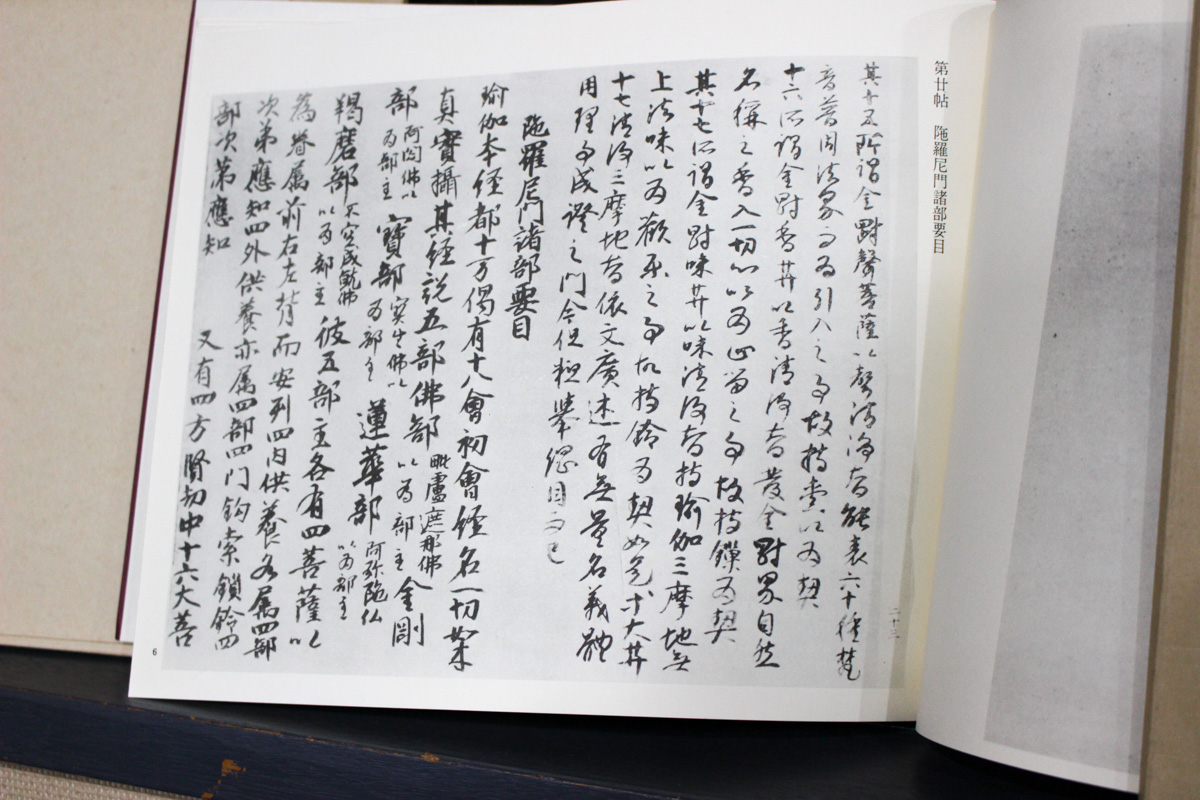 第廿帖　陁羅尼門諸部要目
其十五所謂金剛聲菩薩以聲清淨智能表六十種梵
音普周法界而為引入之事故持索以為契
十六所謂金剛香井以香清淨智發金剛界自然
名稱之香入一切心以為止留之事故持鏁為契
其十七所謂金剛味井以味清淨智持瑜伽三摩地無
上法味以為歡樂之事故持鈴為契如是十六大井
十七清淨三摩地智依文廣述有無量名義體
用理事成證之門今但粗舉綱目而已
陁羅尼門諸部要目
瑜伽本經都十万偈有十八會初會經名一切如來
真實攝其經說五部佛部毗盧遮那佛以為部主金剛
部阿閦佛以為部主寶部寶生佛以為部主蓮華部阿弥陁仏以為部主
羯磨部不空成就佛以為部主彼五部主各有四菩薩以
為眷属前右左背而安列四內供養各属四部
次第應知四外供養亦属四部四門鈎索鎖鈴四
部次第應知　又有四方賢劫中十六大菩
二十三
6